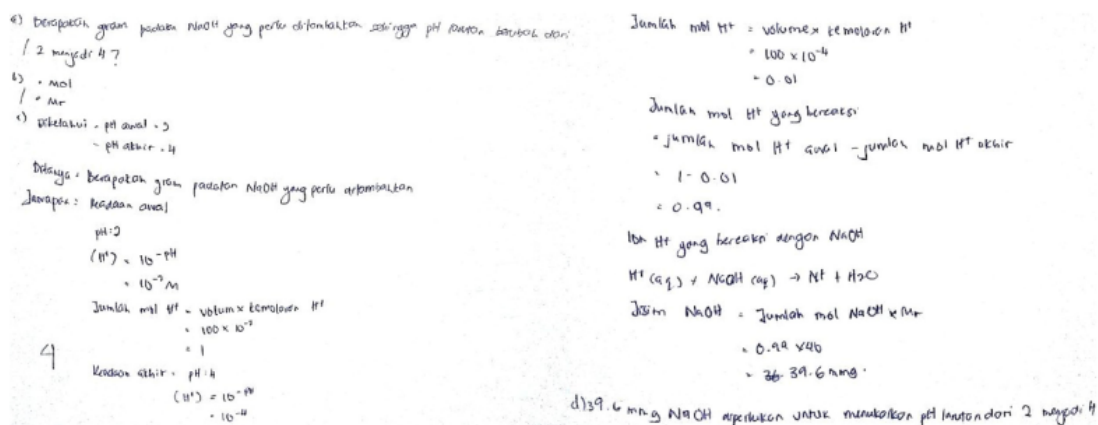 a) Berapakah gram padatan NaOH yang perlu ditambahkan sehingga pH larutan berubah dari
2 menjadi 4 ?
b) • Mol
• Mr
c) Diketahui - pH awal = 2
- pH akhir = 4
Ditanya = Berapakah gram padatan NaOH yang perlu ditambahkan
Jawapan : Keadaan awal
pH = 2
(H⁺) = 10⁻ᵖᴴ
= 10⁻² M
Jumlah mol H⁺ = volum x kemolaran H⁺
= 100 x 10⁻²
= 1
4
Keadaan akhir - pH = 4
(H⁺) = 10⁻ᵖᴴ
= 10⁻⁴
Jumlah mol H⁺ = volume x kemolaran H⁺
= 100 x 10⁻⁴
= 0.01
Jumlah mol H⁺ yang bereaksi
= jumlah mol H⁺ awal - jumlah mol H⁺ akhir
= 1 - 0.01
= 0.99.
Ion H⁺ yang bereaksi dengan NaOH
H⁺ (aq) + NaOH (aq) → Na⁺ + H₂O
Jisim NaOH = Jumlah mol NaOH x Mr
= 0.99 x 40
= 39.6 mmg.
d) 39.6 mmg NaOH diperlukan untuk menukarkan pH larutan dari 2 menjadi 4